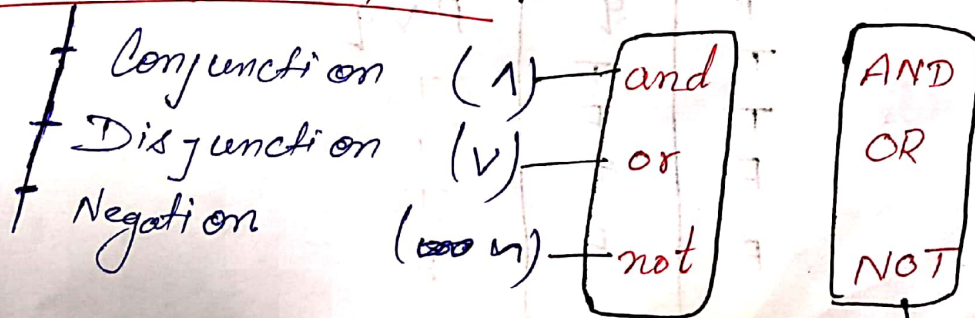 Conjunction (∧) and AND
Disjunction (∨) or OR
Negation (~) not NOT